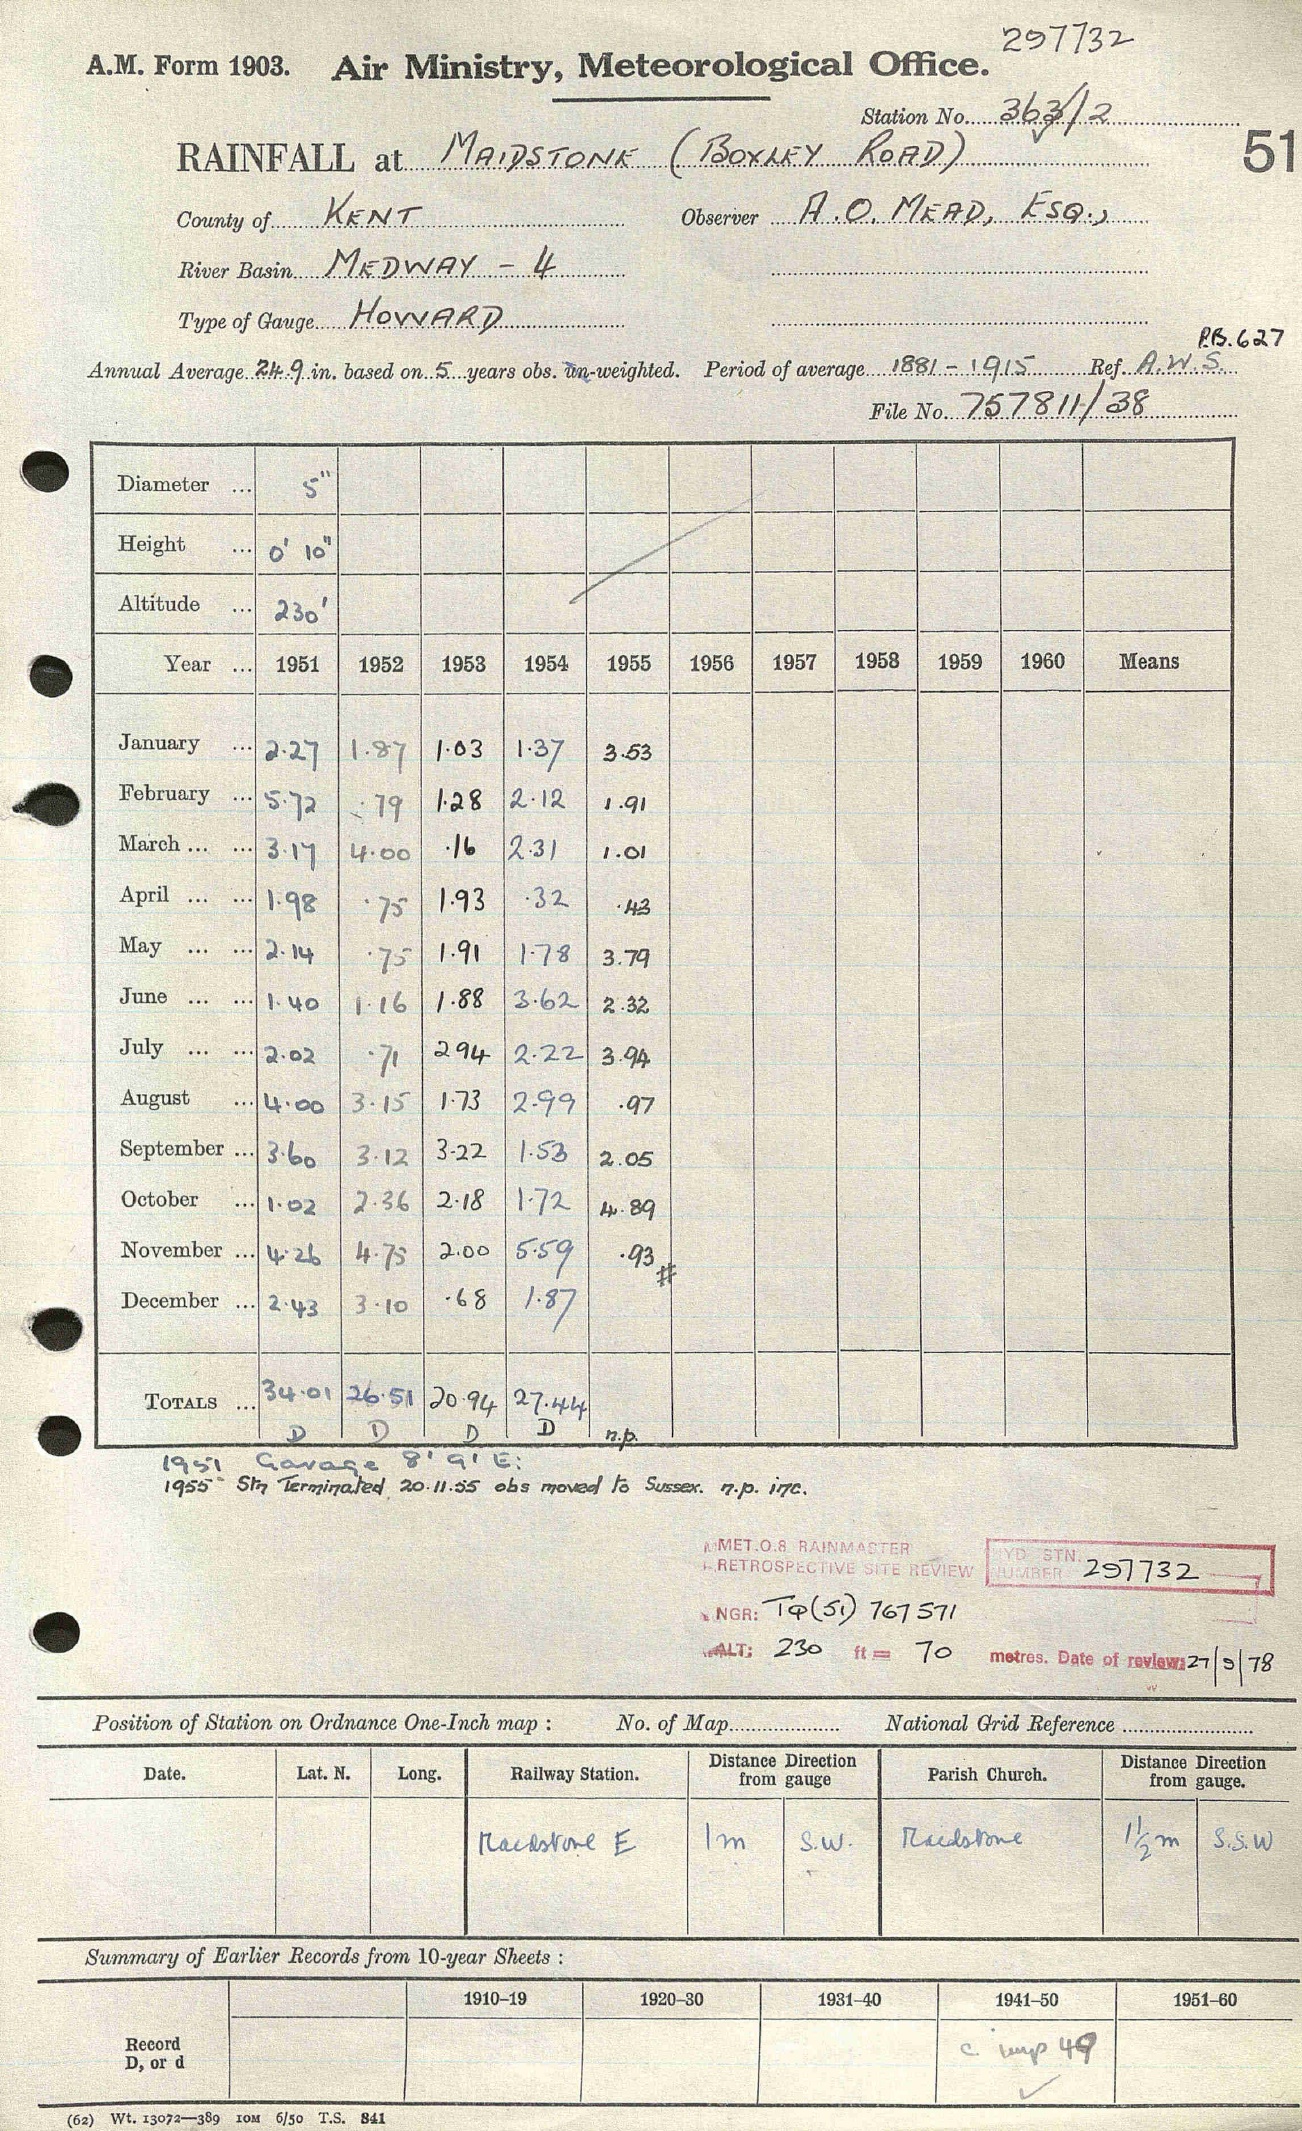 297732
A.M. Form 1903. Air Ministry, Meteorological Office.
Station No. 363/2
51
RAINFALL at MAIDSTONE (BOXLEY ROAD)
County of KENT Observer A.O. MEAD, ESQ.,
River Basin MEDWAY - 4
Type of Gauge HOWARD
P.B.627
Annual Average 24.9 in. based on 5 years obs. un-weighted. Period of average 1881 - 1915 Ref. A.W.S.
File No. 757811/38
Diameter ... 5"
Height ... 0' 10"
Altitude ... 230'
Year ... 1951 1952 1953 1954 1955 1956 1957 1958 1959 1960 Means
January ... 2.27 1.87 1.03 1.37 3.53
February ... 5.72 .79 1.28 2.12 1.91
March ... ... 3.17 4.00 .16 2.31 1.01
April ... ... 1.98 .75 1.93 .32 .43
May ... ... 2.14 .75 1.91 1.78 3.79
June ... ... 1.40 1.16 1.88 3.62 2.32
July ... ... 2.02 .71 2 94 2.22 3.94
August ... 4.00 3.15 1.73 2.99 .97
September ... 3.60 3.12 3.22 1.53 2.05
October ... 1.02 2.36 2.18 1.72 4.89
November ... 4.26 4.75 2.00 5.59 .93 #
December ... 2.43 3.10 .68 1.87
TOTALS ... 34.01 26.51 20.94 27.44
D D D D n.p.
1951 Garage 8' 9' E:
1955 Stn Terminated 20.11.55 obs moved to Sussex. n.p. inc.
MET.O.8 RAINMASTER
RETROSPECTIVE SITE REVIEW
HYD STN. NUMBER 297732
NGR: TQ(51) 767571
ALT: 230 ft = 70 metres. Date of review: 27/9/78
Position of Station on Ordnance One-Inch map : No. of Map National Grid Reference
Date. Lat. N. Long. Railway Station. Distance Direction from gauge Parish Church. Distance Direction from gauge.
Maidstone E 1m S.W. Maidstone 1½m S.S.W
Summary of Earlier Records from 10-year Sheets :
1910–19 1920–30 1931–40 1941–50 1951–60
Record D, or d
c imp 49
(62) Wt. 13072—389 10M 6/50 T.S. 841